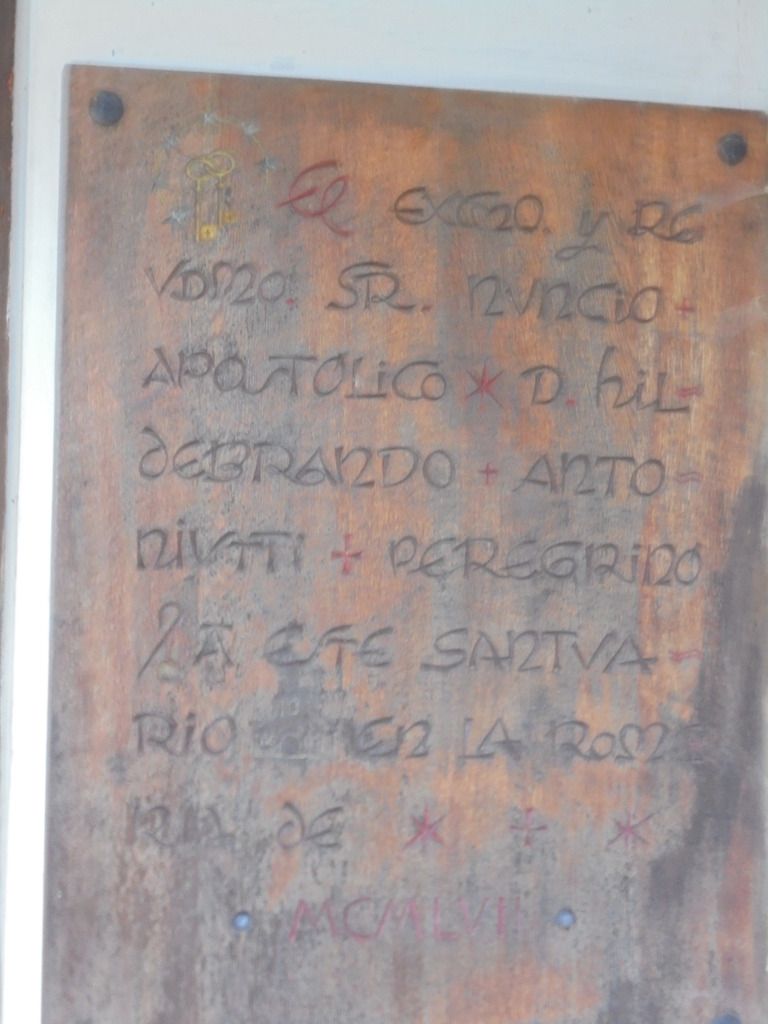 El EXCMO. y RE
VDMO. SR. NUNCIO +
APOSTOLICO * D. HIL-
DEBRANDO + ANTO-
NIUTTI + PEREGRINO
A ESTE SANTUA-
RIO EN LA ROME
RIA DE * + *
MCMLVII